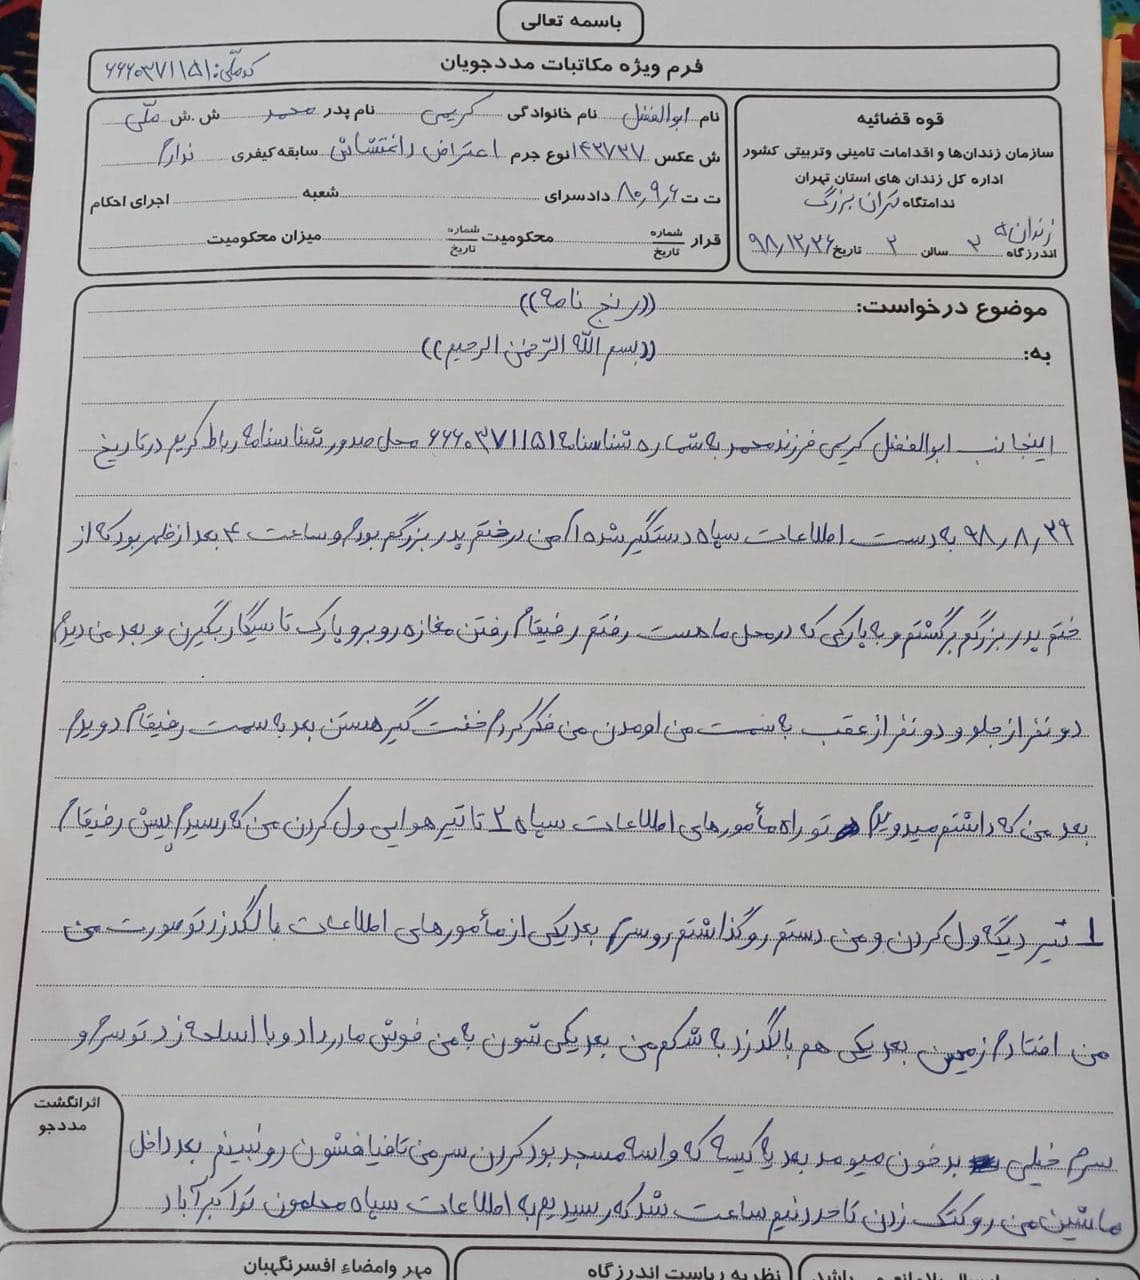 باسمه تعالی
فرم ویژه مکاتبات مددجویان
کد ملّی: ۶۶۶۰۳۷۱۱۵۱
قوه قضائیه
سازمان زندان‌ها و اقدامات تامینی وتربیتی کشور
اداره کل زندان های استان تهران
ندامتگاه تهران بزرگ
زندان
اندرزگاه ۲ سالن ۲ تاریخ ۹۸,۱۲,۲۶
نام ابوالفضل نام خانوادگی کریمی نام پدر محمد ش.ش ملّی
ش عکس ۱۴۲۷۳۷ نوع جرم اعتراض و اغتشاش سابقه کیفری ندارم
ت ت ۸۰,۹,۶ دادسرای شعبه اجرای احکام
قرار شماره تاریخ محکومیت شماره تاریخ میزان محکومیت
موضوع درخواست: ((رنج نامه))
به: ((بسم الله الرّحمٰن الرحیم))
اینجانب ابوالفضل کریمی فرزند محمد به شماره شناسنامه ۶۶۶۰۳۷۱۱۵۱ محل صدور شناسنامه رباط کریم در تاریخ
۹۸,۸,۲۹ به دست اطلاعات سپاه دستگیر شده ام من در ختم پدر بزرگم بودم و ساعت ۴ بعد از ظهر بود که از
ختم پدر بزرگم برگشتم و به پارکی که در محل ما هست رفتم رفیقام رفتن مغازه روبرو پارک تا سیگار بگیرن و بعد من دیدم
دو نفر از جلو و دو نفر از عقب به سمت من اومدن من فکر کردم خفت گیر هستن بعد به سمت رفیقام دویدم
بعد من که داشتم میدویدم تو راه مأمورهای اطلاعات سپاه ۲ تا تیر هوایی ول کردن من که رسیدم پیش رفیقام
۱ تیر دیگه ول کردن و من دستم رو گذاشتم رو سرم بعد یکی از مأمورهای اطلاعات با لگد زد تو صورت من
من افتادم زمین بعد یکی هم با لگد زد به شکم من بعد یکی شون به من فوش مادر داد و با اسلحه زد تو سرم و
سرم خیلی بد خون میومد بعد یه کیسه که واسه مسجد بود کردن سر من تا قیافشون رو نبینم بعد داخل
ماشین من رو کتک زدن تا حدد نیم ساعت شد که رسیدیم به اطلاعات سپاه محلمون تو اکبرآباد
اثر انگشت
مددجو
نظریه ریاست اندرزگاه
مهر وامضاء افسرنگهبان